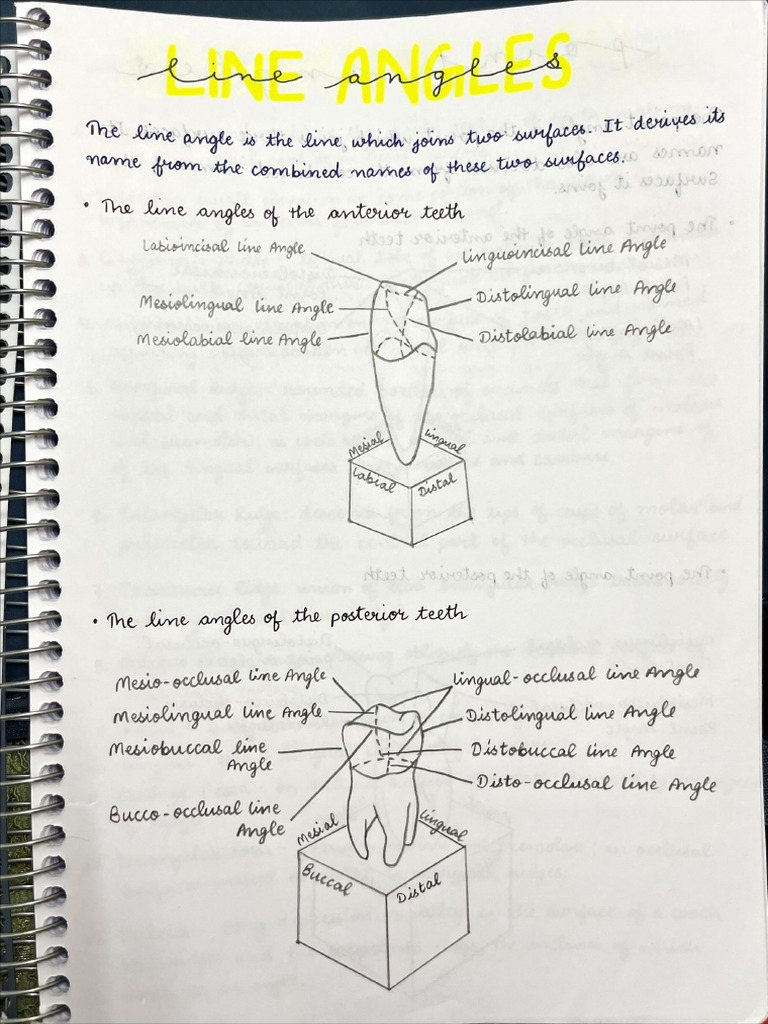 LINE ANGLES
line angles
The line angle is the line, which joins two surfaces. It derives its
name from the combined names of these two surfaces.
• The line angles of the anterior teeth
Labioincisal line Angle
Linguoincisal line Angle
Mesiolingual line Angle
Distolingual line Angle
Mesiolabial line Angle
Distolabial line Angle
Mesial
lingual
Labial
Distal
• The line angles of the posterior teeth
Mesio-occlusal line Angle
lingual-occlusal line Angle
Mesiolingual line Angle
Distolingual line Angle
Mesiobuccal line
Angle
Distobuccal line Angle
Disto-occlusal line Angle
Bucco-occlusal line
Angle
Mesial
lingual
Buccal
Distal